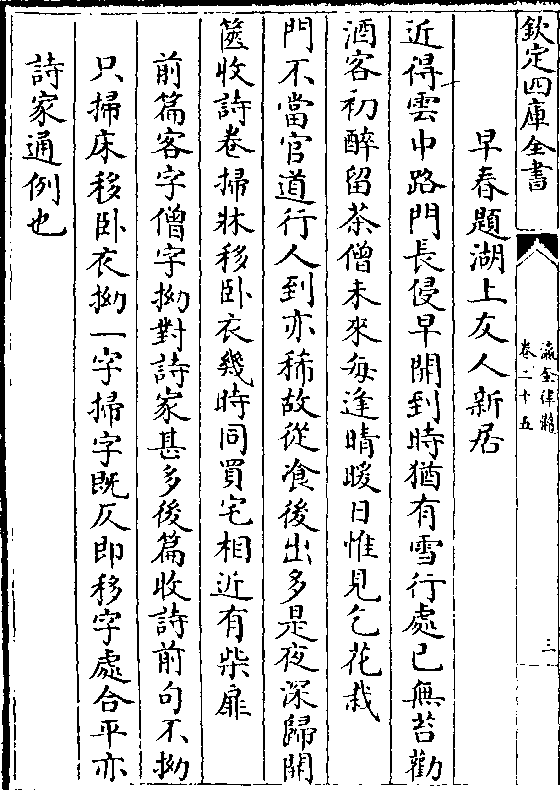 欽定四庫全書
瀛奎律髓
卷二十五
三
早春題湖上友人新居
近得雲中路門長侵早開到時猶有雪行處已無苔勸
酒客初醉留茶僧未來每逢晴暖日惟見乞花栽
門不當官道行人到亦稀故從飡後出多是夜深歸開
篋收詩卷掃牀移卧衣幾時同買宅相近有柴扉
前篇客字僧字拗對詩家甚多後篇收詩前句不拗
只掃床移卧衣拗一字掃字既仄即移字處合平亦
詩家通例也